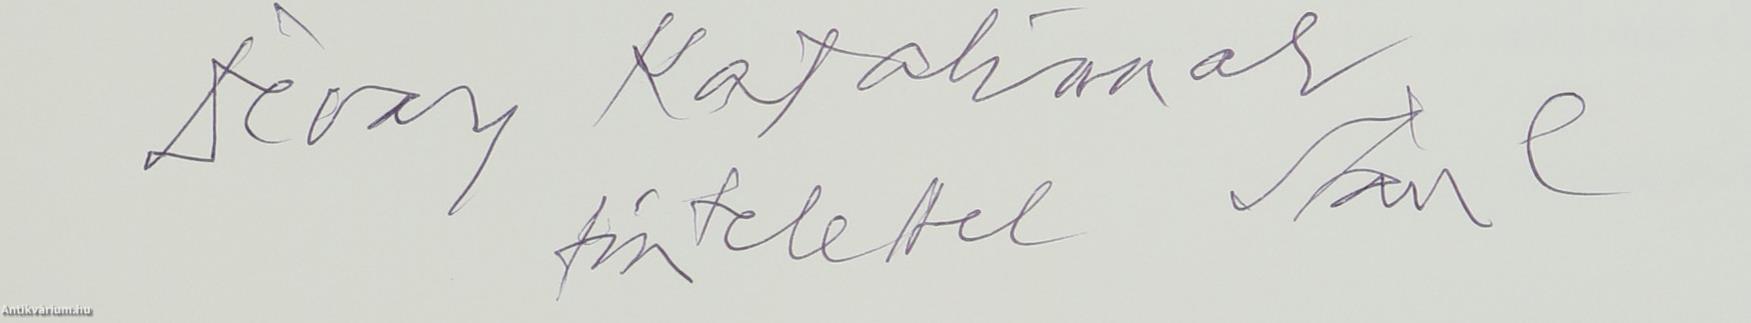 Dévay Katalinnak
tisztelettel
Antikvárium.hu